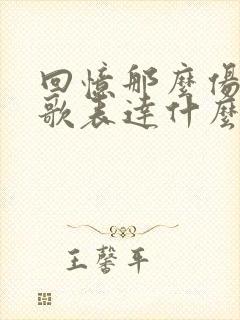 回憶那麼傷
歌表達什麼
王馨平